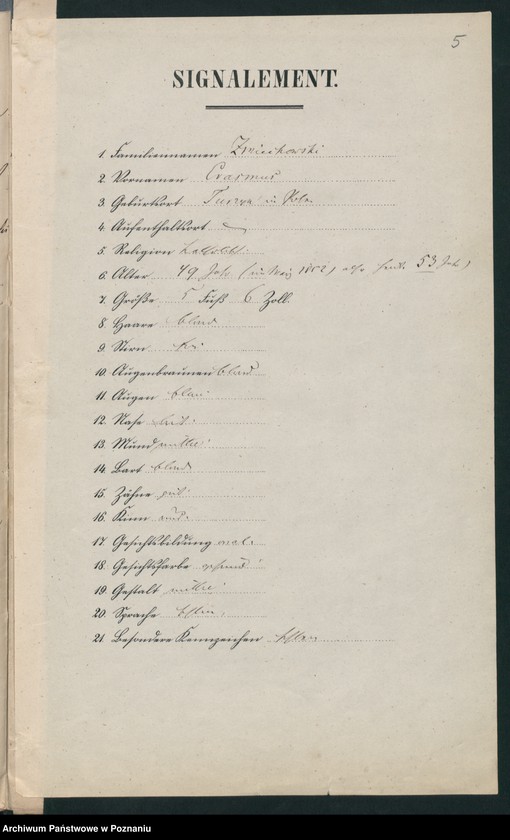 5
SIGNALEMENT.
1. Familiennamen
2. Vornamen Erasmus
3. Geburtsort in Polen
4. Aufenthaltsort
5. Religion katholisch
6. Alter 49 Jahr 1852, also heute 53 Jahr)
7. Größe 5 Fuß 6 Zoll.
8. Haare blond
9. Stirn frei
10. Augenbraunen blond
11. Augen blau
12. Nase
13. Mund mittel
14. Bart blond
15. Zähne gut
16. Kinn rund
17. Gesichtsbildung oval.
18. Gesichtsfarbe gesund
19. Gestalt mittel
20. Sprache
21. Besondere Kennzeichen
Archiwum Państwowe w Poznaniu